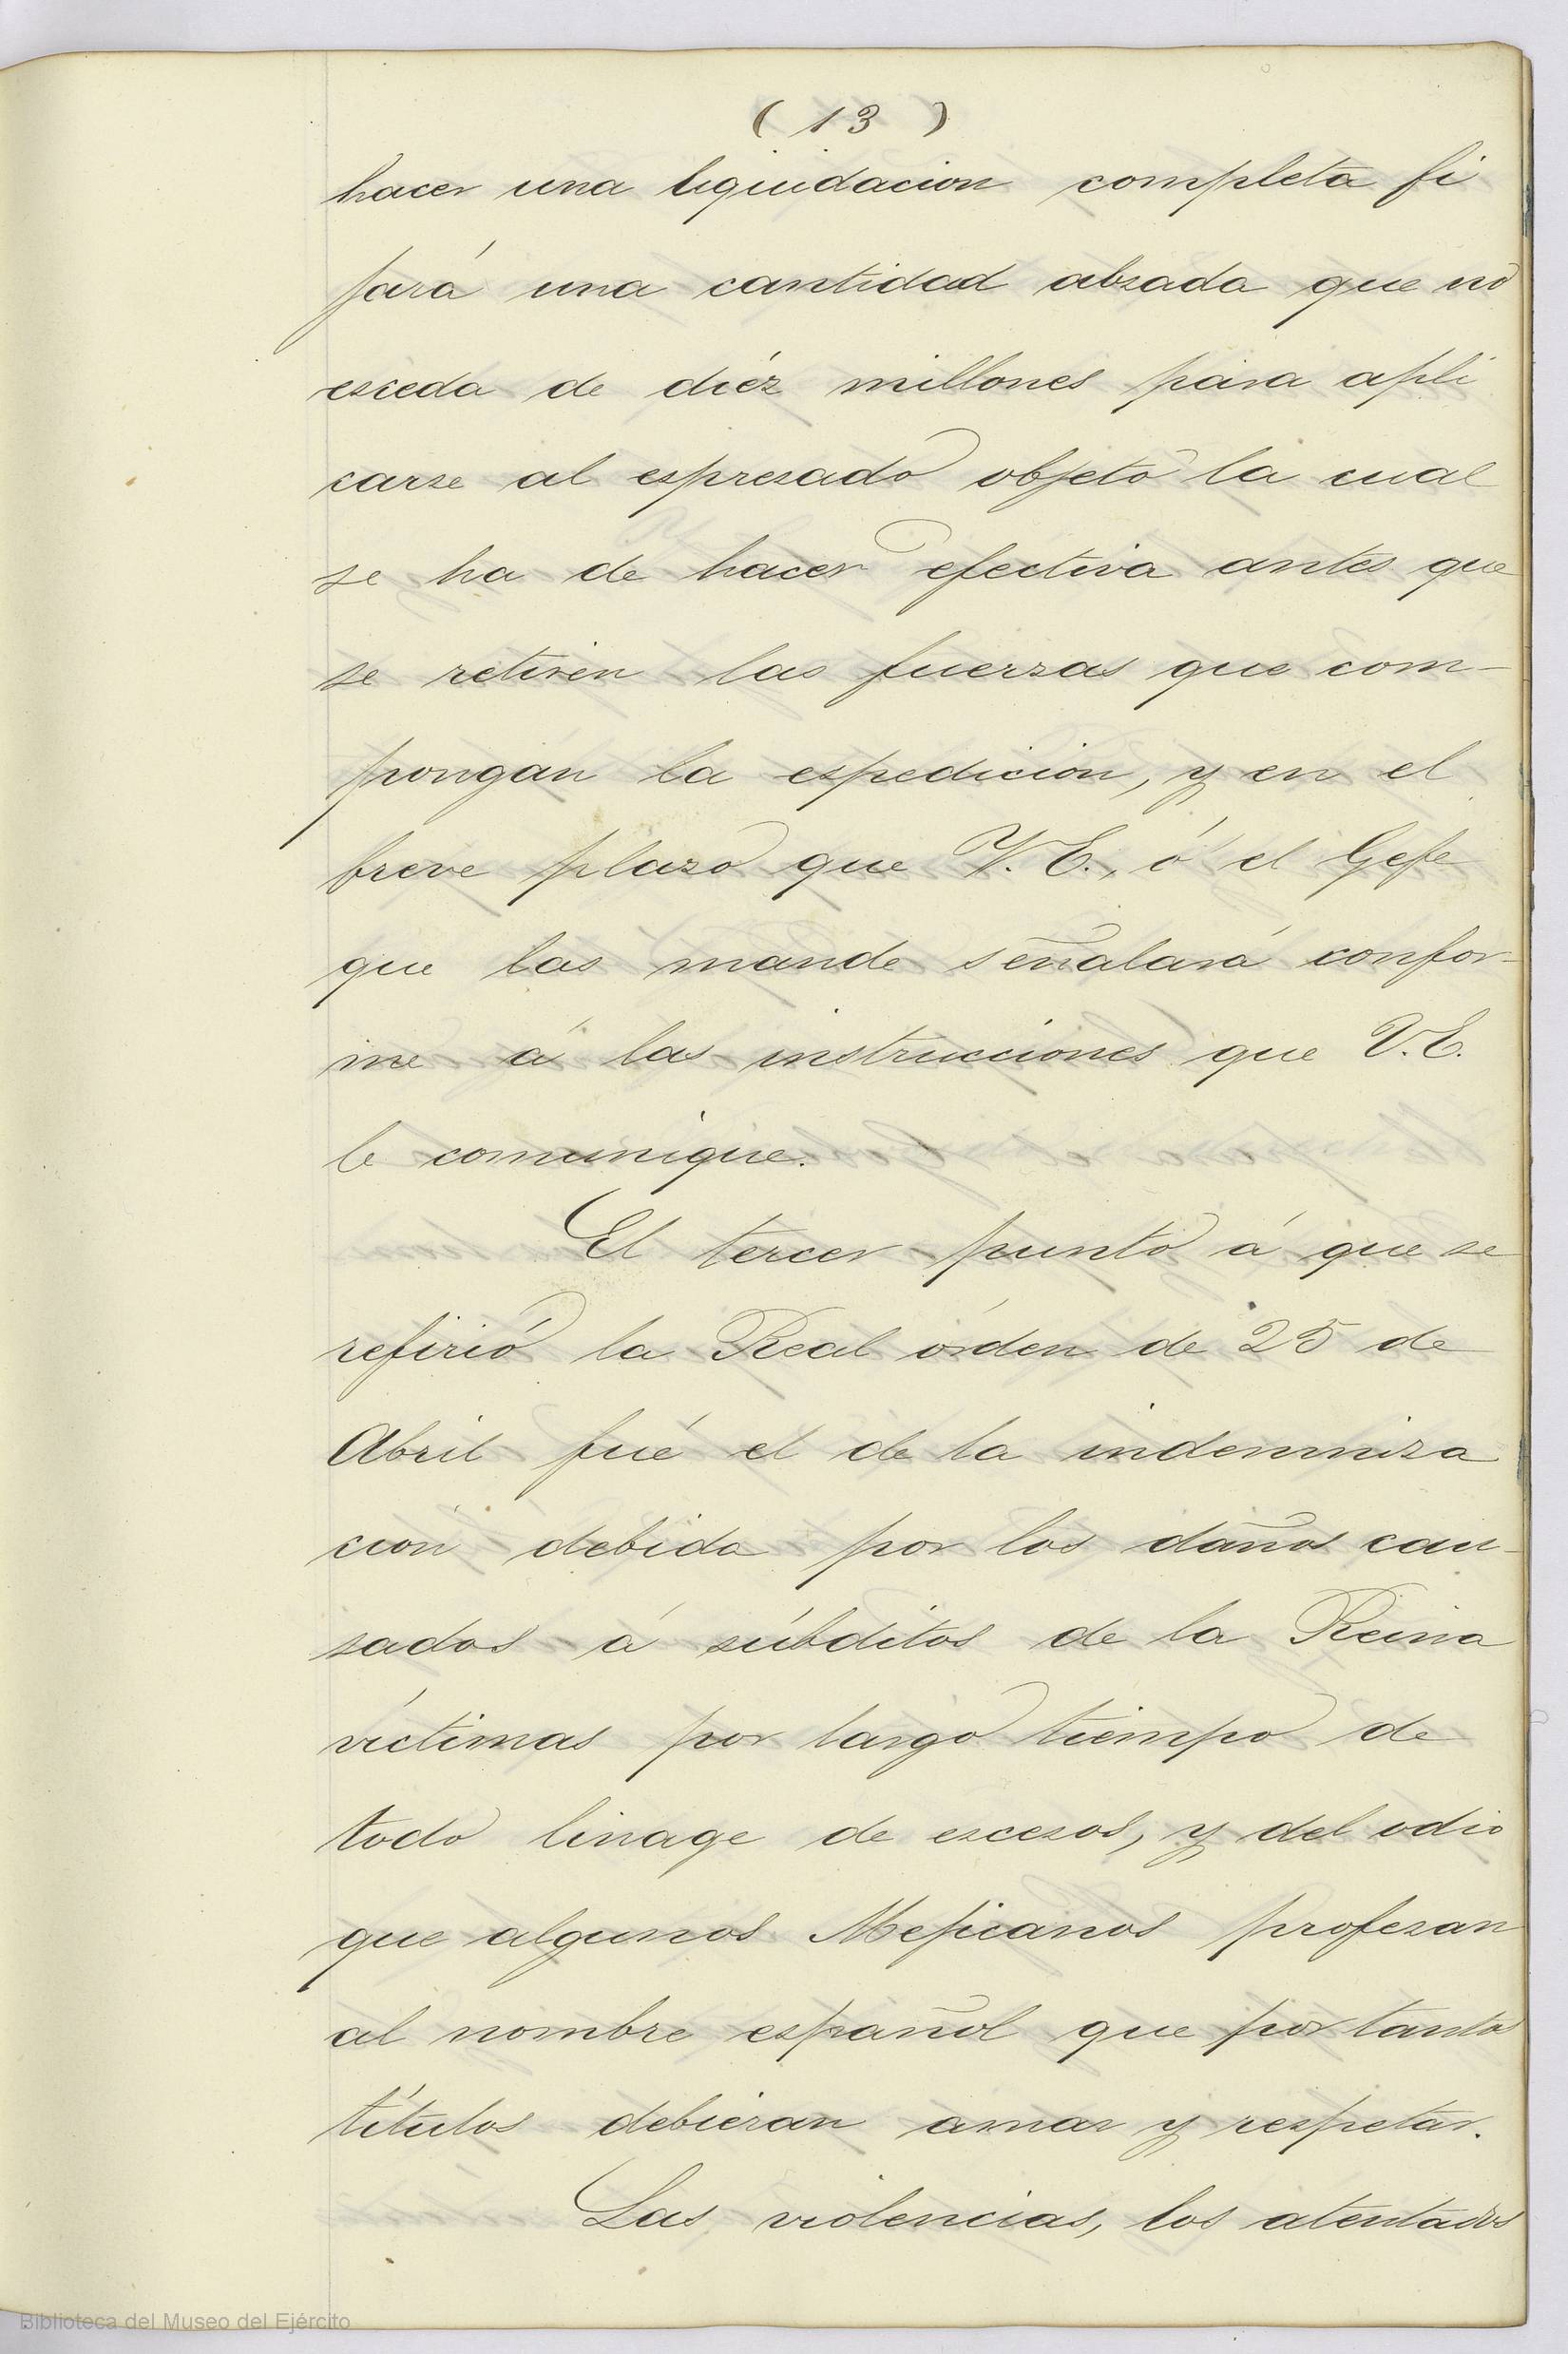 ( 13 )
hacer una liquidacion completa fi
jará una cantidad alzada que no
esceda de diéz millones para apli
carse al espresado objeto la cual
se ha de hacer efectiva antes que
se retiren las fuerzas que com-
pongan la espedicion, y en el
breve plazo que V. E., ó el Gefe
que las mande señalará confor-
me á las instrucciones que V. E.
le comunique.
El tercer punto á que se
refirió la Real órden de 25 de
Abril fué el de la indemniza
cion debida por los daños cau-
sados á súbditos de la Reina
víctimas por largo tiempo de
todo linage de escesos, y del odio
que algunos Mejicanos profesan
al nombre español que por tantos
títulos debieran amar y respetar.
Las violencias, los atentados
Biblioteca del Museo del Ejército